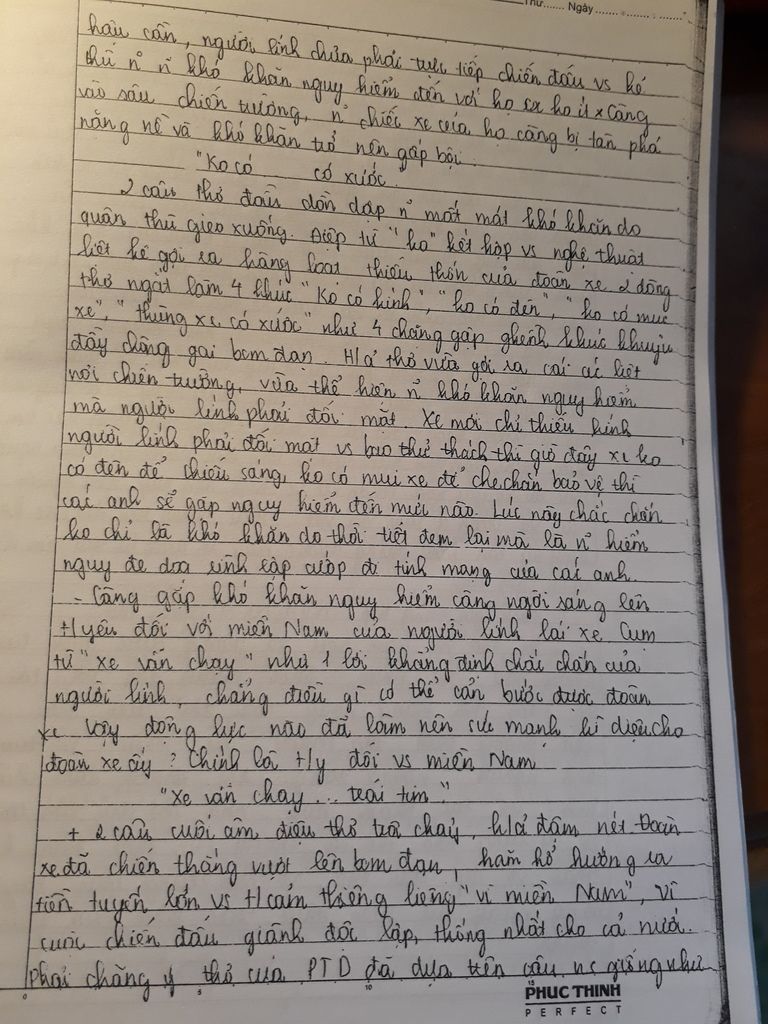 Thứ....... Ngày.......
hậu cần, người lính chưa phải trực tiếp chiến đấu vs kẻ
thù n~ n~ khó khăn nguy hiểm đến với họ ko hề ít. Càng
vào sâu chiến trường, n~ chiếc xe của họ càng bị tàn phá
nặng nề và khó khăn trở nên gấp bội.
"Ko có      có xước.
2 câu thơ đầu dồn dập n~ mất mát khó khăn do
quân thù gieo xuống. Điệp từ "ko" kết hợp vs nghệ thuật
liệt kê gợi ra hàng loạt thiếu thốn của đoàn xe 2 dòng
thơ ngắt làm 4 khúc "Ko có kính", "ko có đèn", "ko có mui
xe", "thùng xe có xước" như 4 chặng gập ghềnh khúc khuỷu
đầy chông gai bom đạn. H/ả thơ vừa gợi ra cái ác liệt
nơi chiến trường, vừa thể hiện n~ khó khăn nguy hiểm
mà người lính phải đối mặt. Xe mới chỉ thiếu kính
người lính phải đối mặt vs bao thử thách thì giờ đây xe ko
có đèn để chiếu sáng, ko có mui xe để che chắn bảo vệ thì
các anh sẽ gặp nguy hiểm đến mức nào. Lúc này chắc chắn
ko chỉ là khó khăn do thời tiết đem lại mà là n~ hiểm
nguy đe doạ rình rập cướp đi tính mạng của các anh.
- Càng gặp khó khăn nguy hiểm càng ngời sáng lên
t/yêu đối với miền Nam của người lính lái xe. Cụm
từ "xe vẫn chạy" như 1 lời khẳng định chắc chắn của
người lính, chẳng điều gì có thể cản bước được đoàn
xe vậy động lực nào đã làm nên sức mạnh kì diệu cho
đoàn xe ấy? Chính là t/y đối vs miền Nam
"Xe vẫn chạy ... trái tim"
+ 2 câu cuối âm điệu thơ trôi chảy, h/ả đậm nét Đoàn
xe đã chiến thắng vượt lên bom đạn, hăm hở hướng ra
tiền tuyến lớn vs t/cảm thiêng liêng "vì miền Nam", vì
cuộc chiến đấu giành độc lập, thống nhất cho cả nước.
Phải chăng ý thơ của PTD đã dựa trên câu ns giống như
PHUC THINH
PERFECT